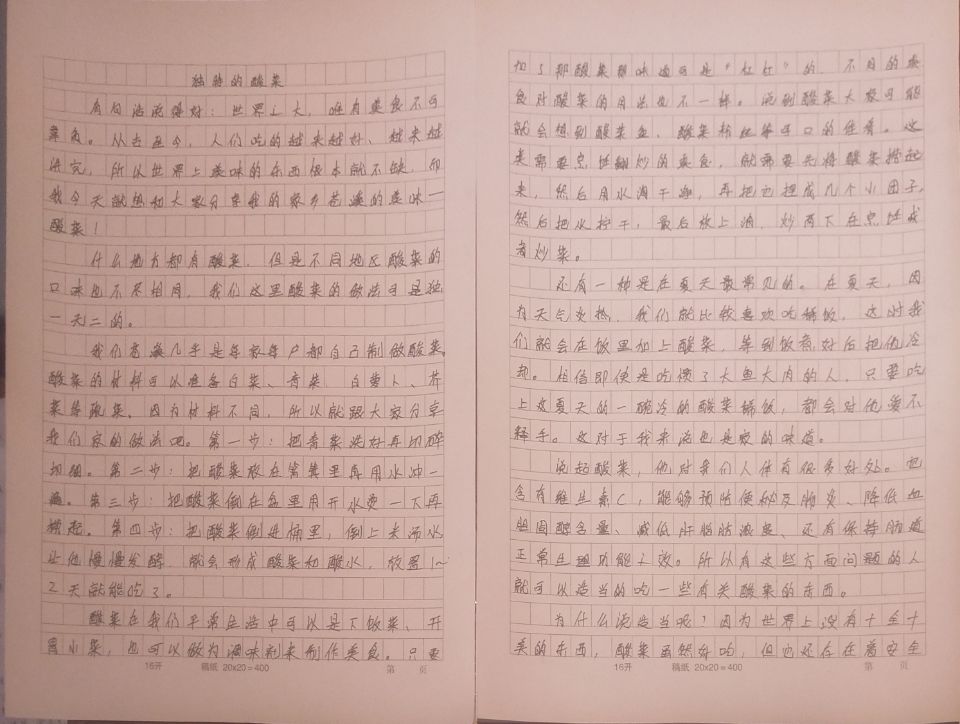 独特的酸菜
有句话说得好：世界之大，唯有美食不可
辜负。从古至今，人们吃的越来越好、越来越
讲究，所以世界上美味的东西根本就不缺，而
我今天就想和大家分享我的家乡苍溪的美味—
酸菜！
什么地方都有酸菜，但是不同地区酸菜的
口味也不尽相同，我们这里酸菜的做法可是独
一无二的。
我们苍溪几乎是每家每户都自己制做酸菜。
酸菜的材料可以准备白菜、青菜、白萝卜、芥
菜等蔬菜。因为材料不同，所以就跟大家分享
我们家的做法吧。第一步：把青菜洗好再切碎
切细。第二步：把酸菜放在筲箕里再用水冲一
遍。第三步：把酸菜倒在盆里用开水烫一下再
捞起。第四步：把酸菜倒进桶里，倒上米汤水
让他慢慢发酵，就会形成酸菜和酸水，放置1~
2天就能吃了。
酸菜在我们平常生活中可以是下饭菜、开
胃小菜，也可以做为调味剂来制作美食。只要
16开 稿纸 20x20=400 第 页
加了那酸菜那味道可是“杠杠”的，不同的美
食对酸菜的用法也不一样。说到酸菜大家可能
就会想到酸菜鱼，酸菜粉丝等可口的佳肴。这
类需要烹炒的美食，就需要先将酸菜捞起
来，然后用水滴干，再把它捏成几个小团子，
然后把水拧干，最后放上油，炒两下在烹饪或
者炒菜。
还有一种是在夏天最常见的。在夏天，因
为天气炎热，我们就比较喜欢吃稀饭，这时我
们就会在饭里加上酸菜，等到饭煮好后把他冷
却。相信即使是吃惯了大鱼大肉的人，只要吃
上这夏天的一碗冷的酸菜稀饭，都会对他爱不
释手。这对于我来说也是家的味道。
说起酸菜，他对我们人体有很多好处。它
含有维生素C、能够预防便秘及肠炎、降低血
胆固醇含量、减低肝脂肪浓度、还有保持肠道
正常生理功能之效。所以有这些方面问题的人
就可以适当的吃一些有关酸菜的东西。
为什么说适当呢？因为世界上没有十全十
美的东西，酸菜虽然好吃，但也还存在着安全
16开 稿纸 20x20=400 第 页